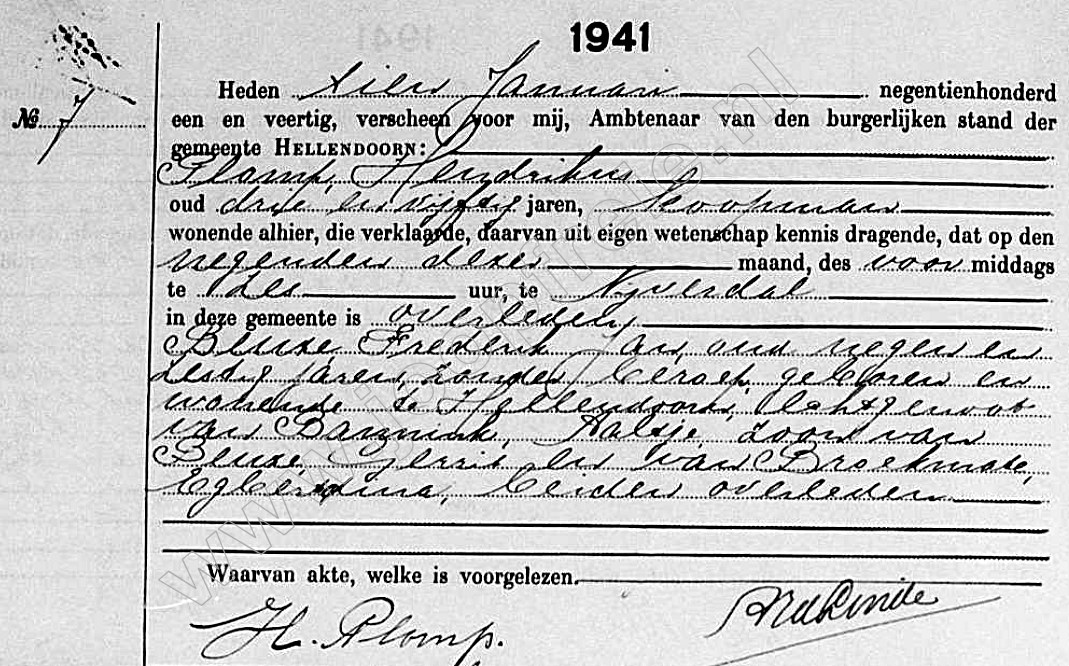 1941
№ 7
Heden tien Januari negentienhonderd
een en veertig, verscheen voor mij, Ambtenaar van den burgerlijken stand der
gemeente HELLENDOORN:
Plomp, Hendrikus
oud drie en vijftig jaren, koopman
wonende alhier, die verklaarde, daarvan uit eigen wetenschap kennis dragende, dat op den
negenden dezer maand, des voor middags
te zes uur, te Nijverdal
in deze gemeente is overleden,
Beuze Frederik Jan, oud negen en
zestig jaren, zonder beroep, geboren en
wonende te Hellendoorn, echtgenoot
van Bannink, Aaltje, zoon van
Beuze, Gerrit en van Broekmate,
Egberdina, beiden overleden
Waarvan akte, welke is voorgelezen.
H. Plomp.